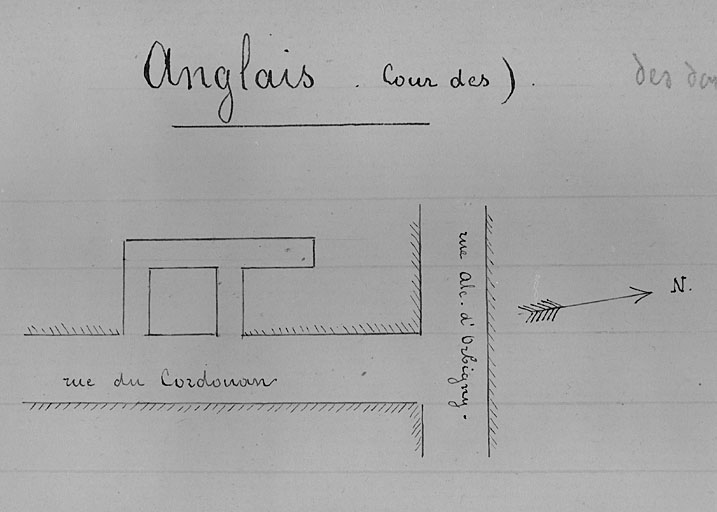 Anglais . Cour des) .
des
rue Alc. d'Orbigny.
N.
rue du Cordouan